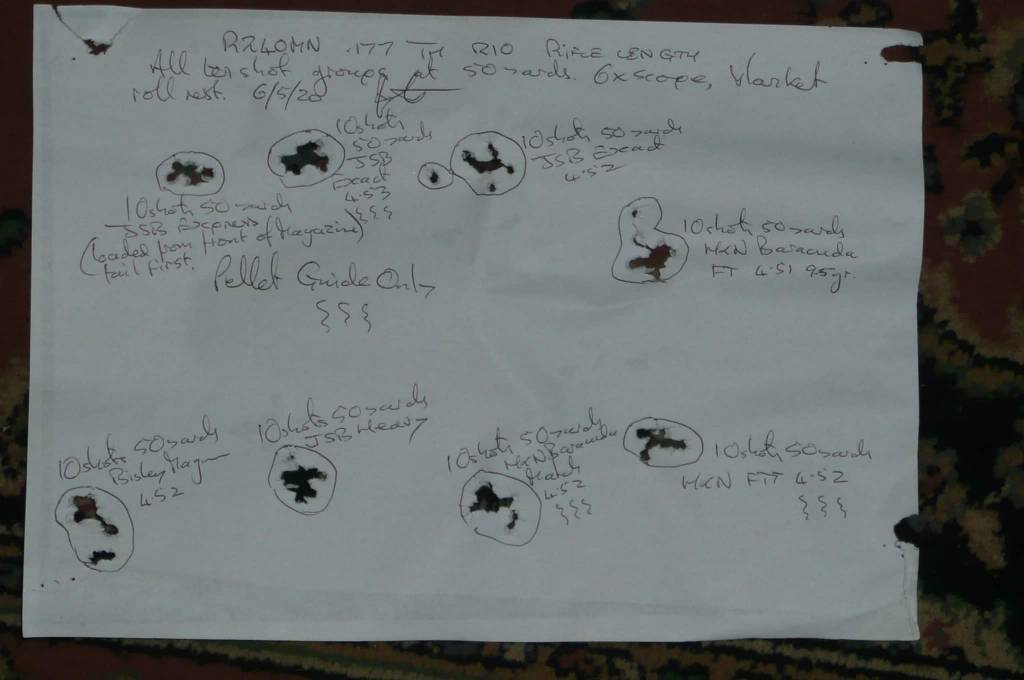 .177 TH R10 RIFLE LENGTH
All ten shot groups at 50 yards. 6x scope,
roll rest. 6/5/20
10 shots
50 yards
JSB
Exact
4.53
10 shots 50 yards
JSB Exact
4.52
10 shots 50 yards
JSB Express
(loaded from front of Magazine)
tail first.
Pellet Guide Only
10 shots 50 yards
H&N Baracuda
FT 4.51 9.5gr.
10 shots 50 yards
Bisley Magnum
4.52
10 shots 50 yards
JSB Heavy
10 shots 50 yards
H&N Baracuda
Match
4.52
10 shots 50 yards
H&N FTT 4.52